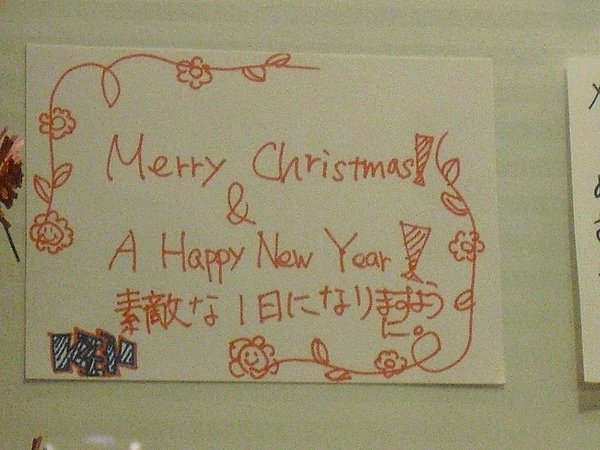 Merry Christmas!
&
A Happy New Year!
素敵な1日になりますよう
に。